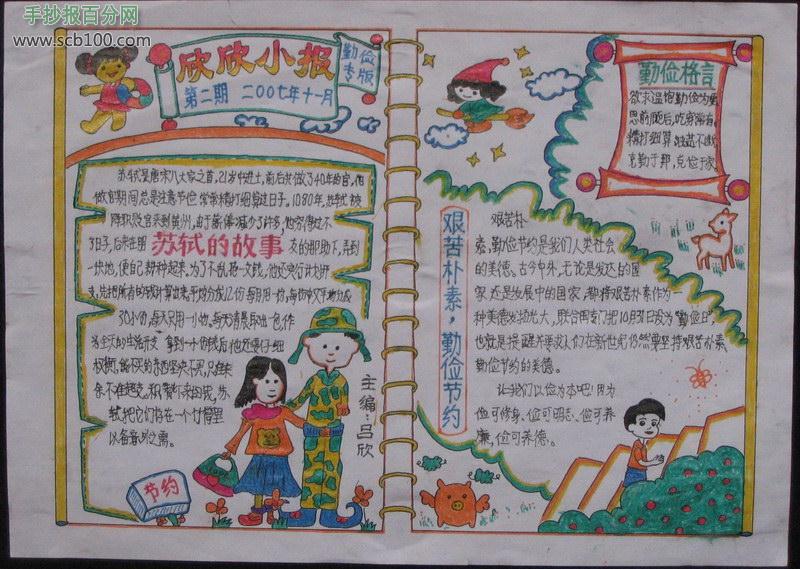 手抄报百分网
www.scb100.com
欣欣小报
勤俭
专版
第二期 二00七年十一月
苏轼是唐宋八大家之首,21岁中进士,前后共做了40年的官,他
做官期间总是注意节俭,常常精打细算过日子。1080年,苏轼被
降职贬官来到黄州,由于薪俸减少了许多,他穷得过不
了日子,后来在朋
苏轼的故事
友的帮助下,弄到
一块地,便自己耕种起来。为了不乱花一文钱,他还实行计划开
支,先把所有的钱计算出来,平均分成12份,每月用一份,每份中又平均分成
30小份,每天只用一小份,每天清晨取出一包作
为全天的生活开支 拿到一小份钱后,他还要仔细
权衡,能不买的东西坚决不买,只准剩
余,不准超支。积攒下来的钱,苏
轼把它们存在一个竹筒里
以备意外之需。
主编:吕欣
节约
勤俭格言
欲求温饱,勤俭为要
精打细算
克勤于邦,克俭于家
艰苦朴素,勤俭节约
艰苦朴
素,勤俭节约是我们人类社会
的美德。古今中外,无论是发达的国
家还是发展中的国家,都将艰苦朴素作为一
种美德发扬光大,联合国专门把10月31日设为“勤俭日”,
也就是提醒并要求人们在新世纪仍然要坚持艰苦朴素
勤俭节约的美德。
让我们以俭为本吧!因为
俭可修身、俭可明志、俭可养
廉,俭可养德。